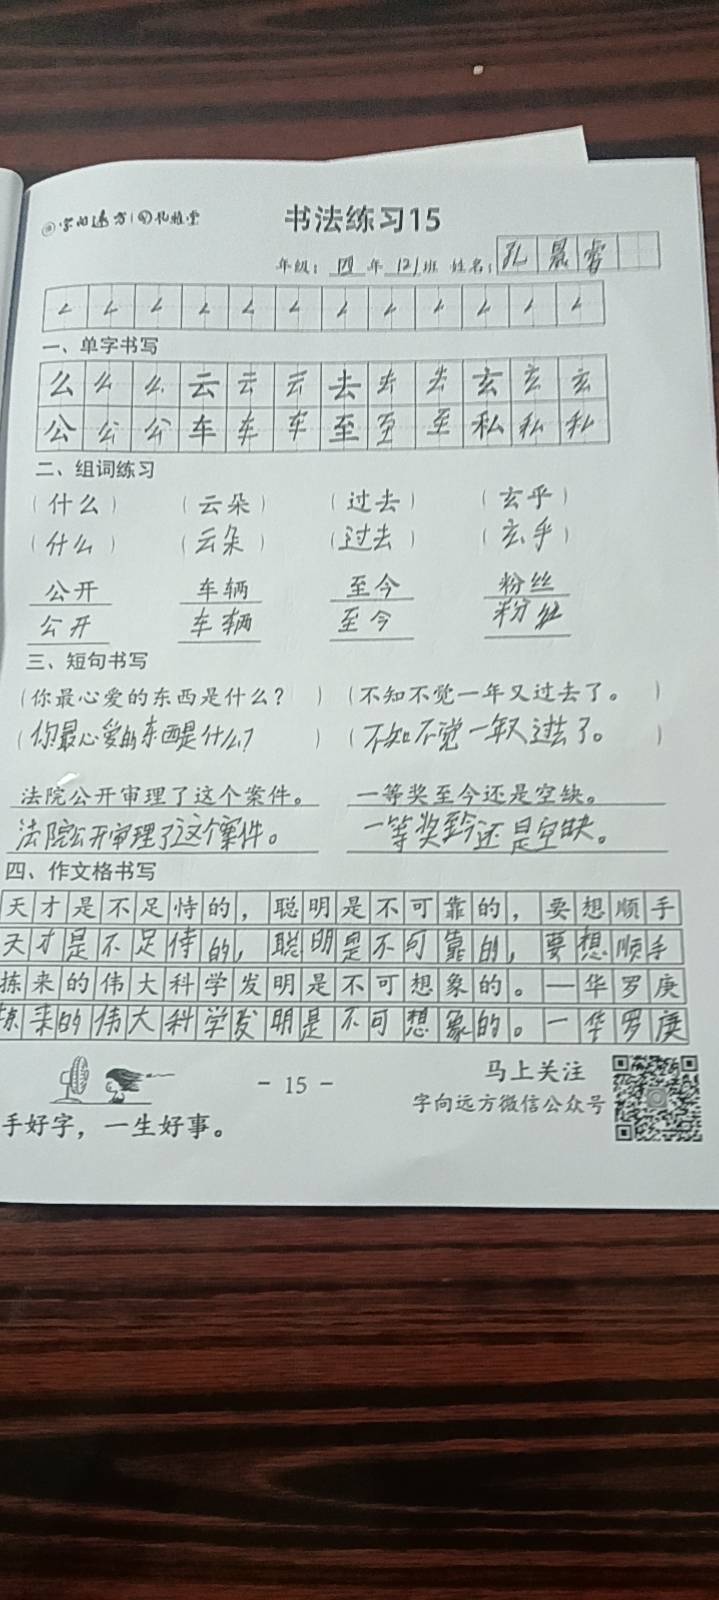 字向远方
书法练习15
年级：四年(2)班 姓名：孔晨睿
一、单字书写
么么么云云云去去去玄玄玄
公公公车车车至至至私私私
二、组词练习
（什么）（云朵）（过去）（玄乎）
（什么）（云朵）（过去）（玄乎）
公开 车辆 至今 粉丝
公开 车辆 至今 粉丝
三、短句书写
（你最心爱的东西是什么？）（不知不觉一年又过去了。）
（你最心爱的东西是什么？）（不知不觉一年又过去了。）
法院公开审理了这个案件。 一等奖至今还是空缺。
法院公开审理了这个案件。 一等奖至今还是空缺。
四、作文格书写
天才是不足恃的，聪明是不可靠的，要想顺手
天才是不足恃的，聪明是不可靠的，要想顺手
拣来的伟大科学发明是不可想象的。—华罗庚
拣来的伟大科学发明是不可想象的。一华罗庚
- 15 -
马上关注
字向远方微信公众号
手好字，一生好事。